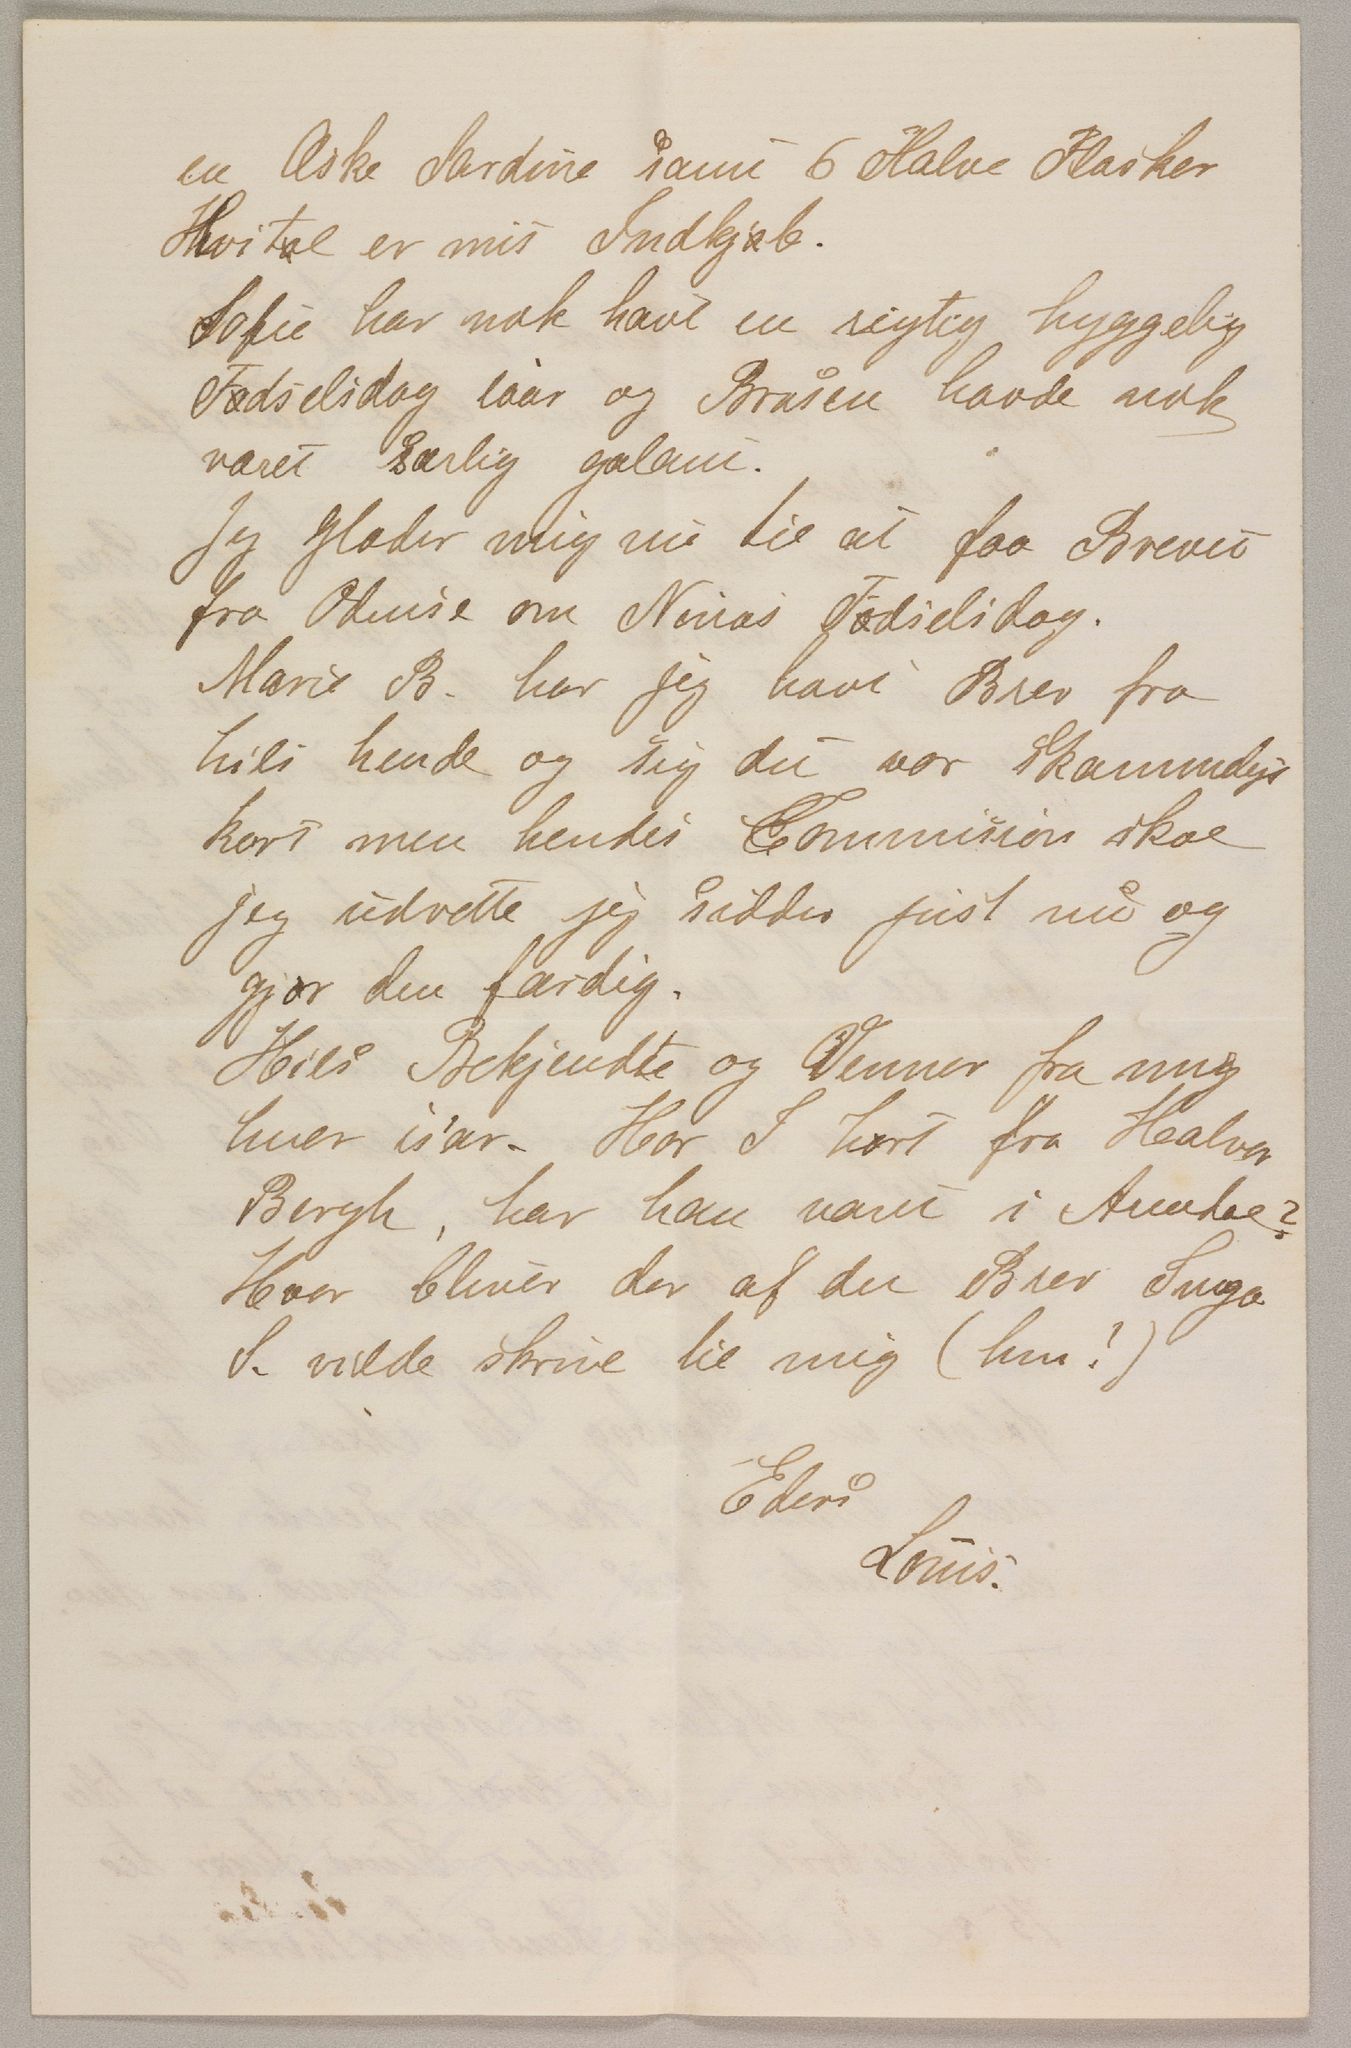 en Æske Sardine samt 6 Halve Flasker
Hvitøl er mit Indkjøb.
Sofie har nok havt en rigtig hyggelig
Fødselsdag iaar og Brosen havde nok
været særlig galant.
Jeg Glæder mig nu til at faa Brevet
fra Odense om Ninas Fødselsdag.
Marie B. har jeg havt Brev fra
hils hende og sig det var Skammeligt
kort men hendes Commision skal
jeg udrette jeg sidder just nu og
gjør den færdig.
Hils Bekjendte og Venner fra mig
hver især. Har I hørt fra Halvor
Bergh, har han været i Arendal?
Hvor bliver der af det Brev Inga
S. vilde skrive til mig (hm!)
Eders
Louis.